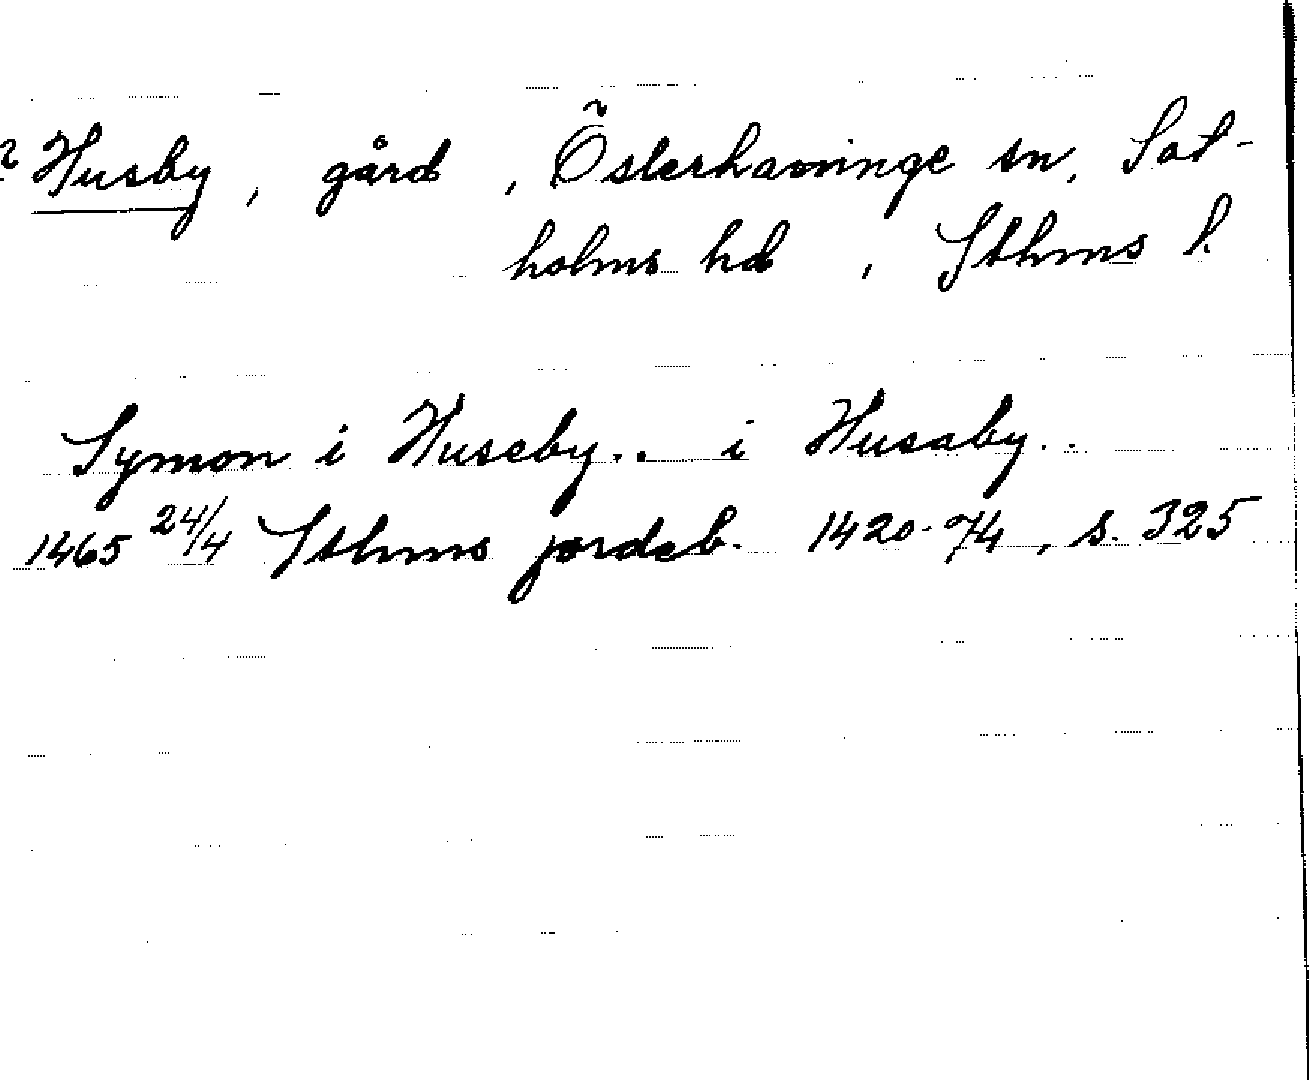 ? Husby, gård, Österhaninge sn, Sot-
holms hd, Sthms l.
Symon i Huseby.. i Husaby..
1465 24/4 Sthms jordeb. 1420-74, s. 325